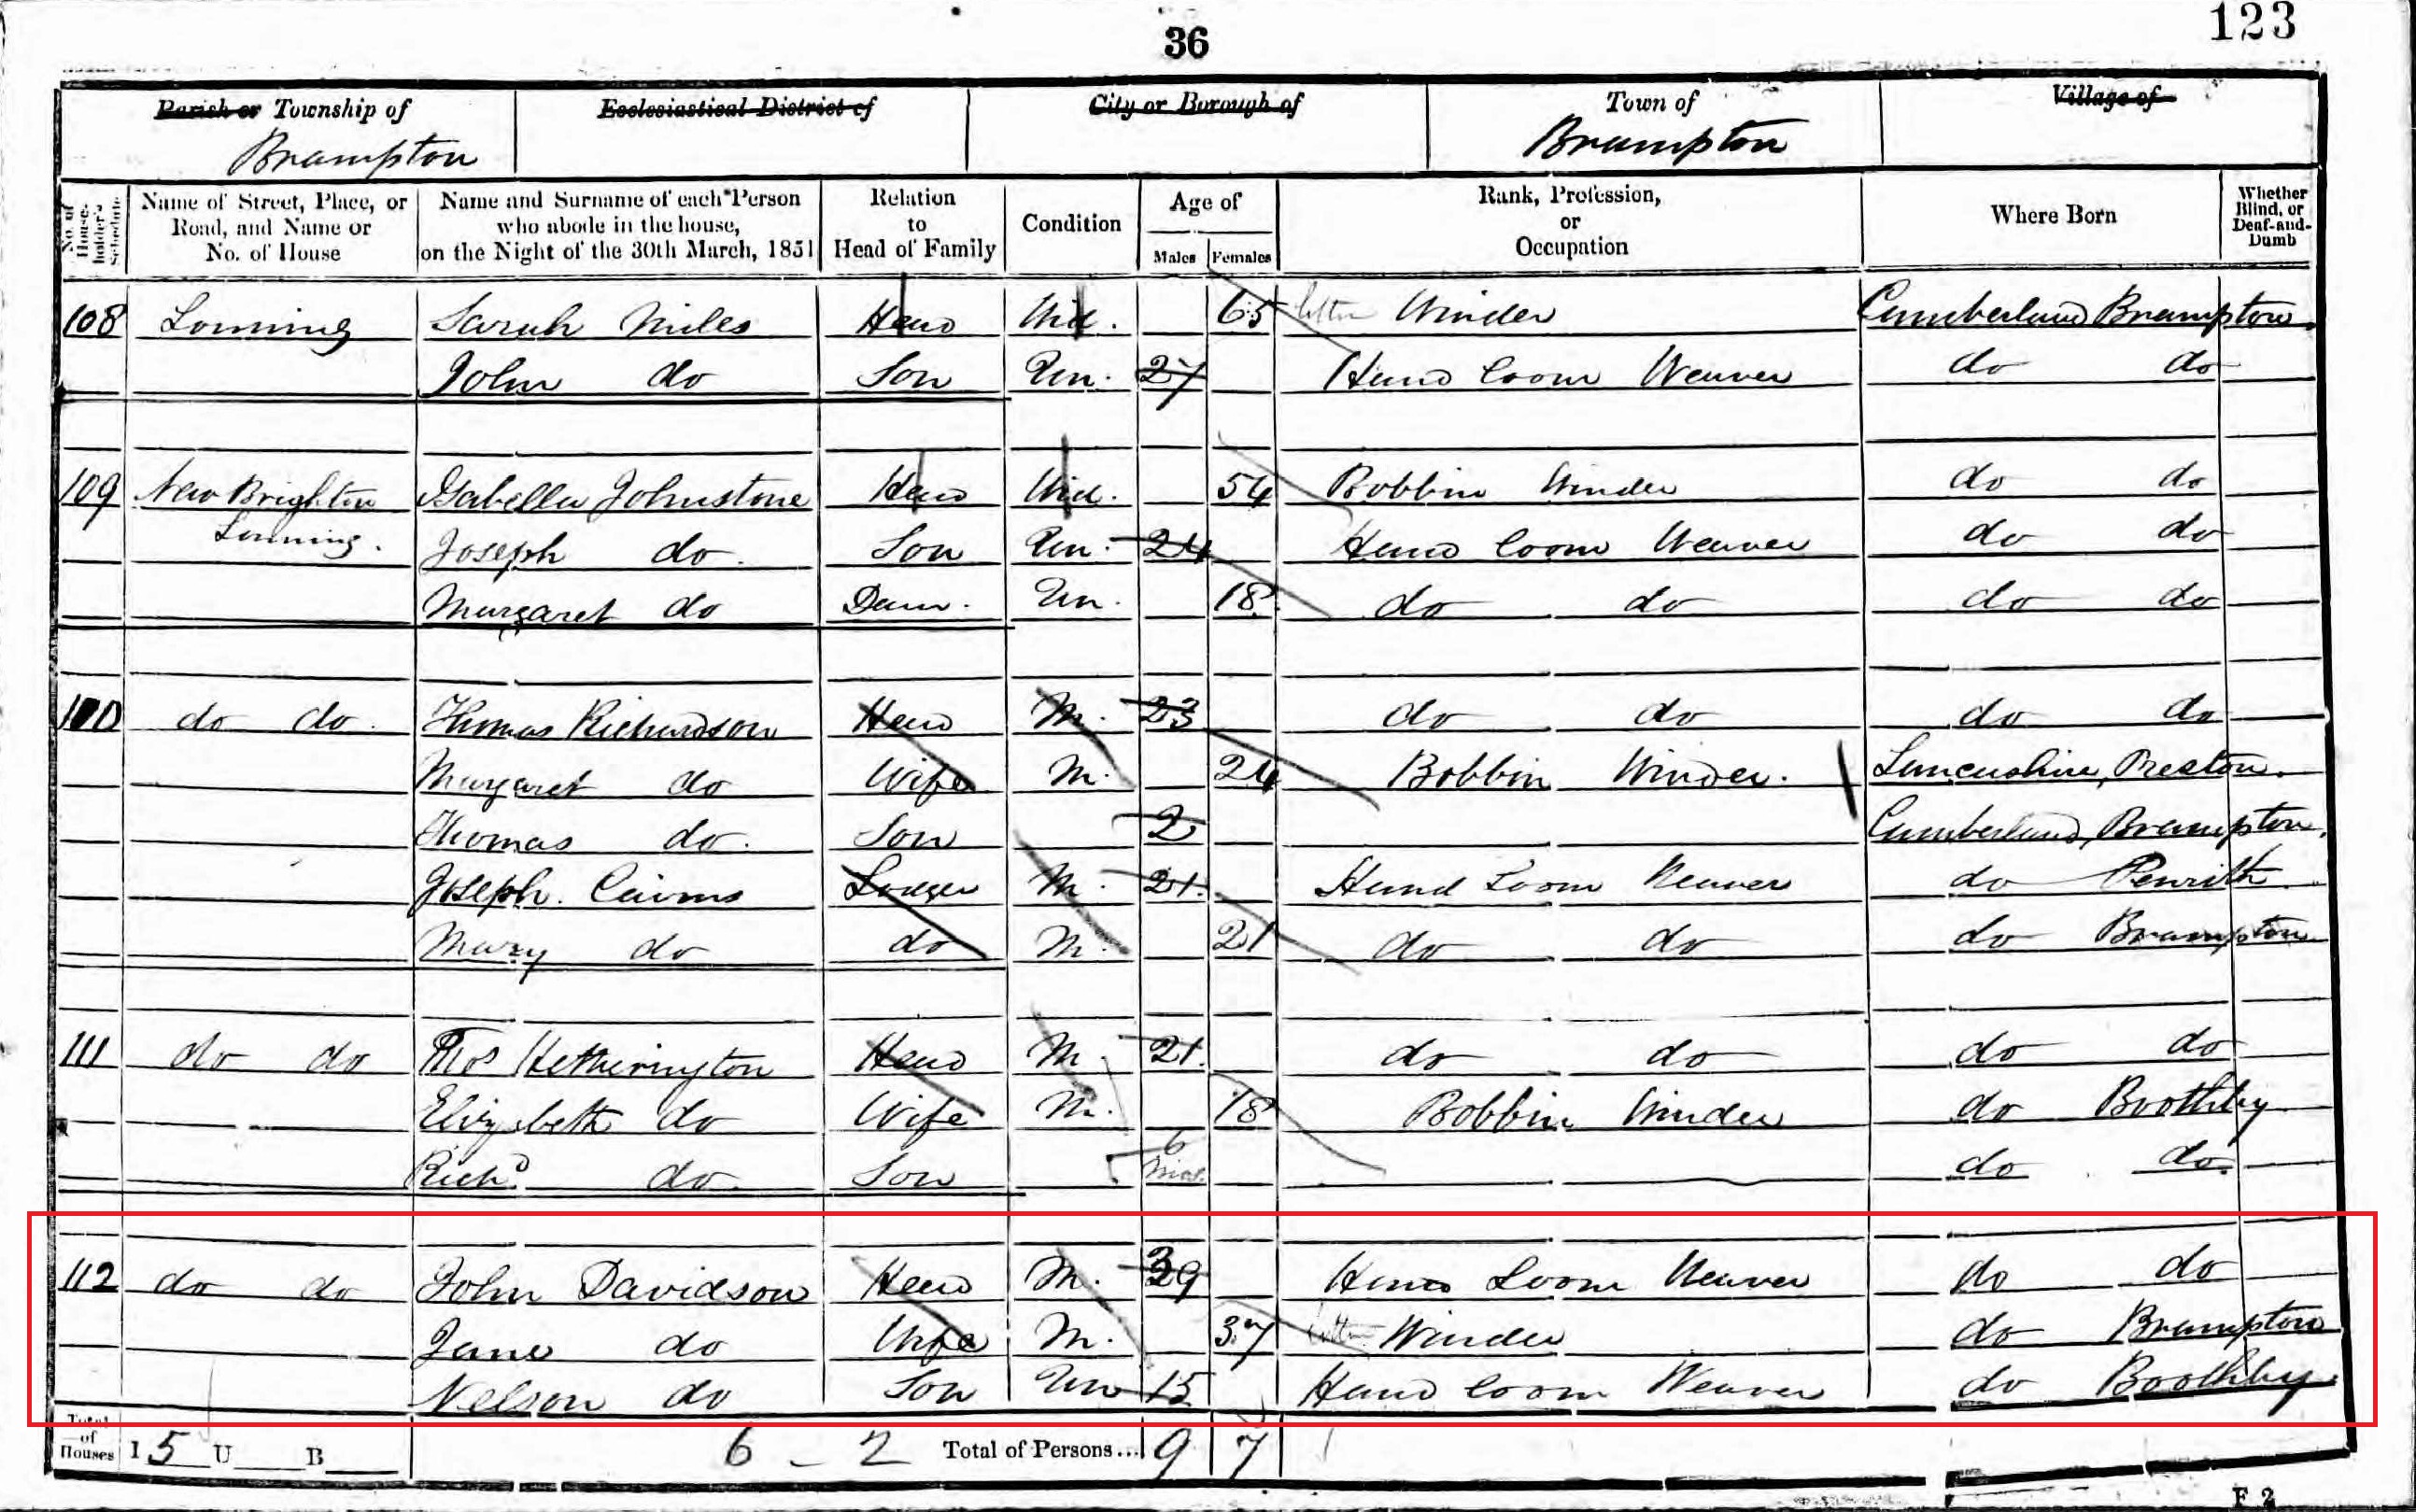 36
123
Parish or Township of
Brampton
Ecclesiastical District of
City or Borough of
Town of
Brampton
Village of
No. of House-holder's Schedule
Name of Street, Place, or Road, and Name or No. of House
Name and Surname of each Person who abode in the house, on the Night of the 30th March, 1851
Relation to Head of Family
Condition
Age of
Males Females
Rank, Profession, or Occupation
Where Born
Whether Blind, or Deaf-and-Dumb
108 Lonning Sarah Miles Head Wid. 65 Cotton Winder Cumberland Brampton.
John do Son Un. 27 Hand loom Weaver do do
109 New Brighton Isabella Johnstone Head Wid. 54 Bobbin Winder do do
Lonning. Joseph do. Son Un. 24 Hand loom Weaver do do
Margaret do Daur. Un. 18 do do do do
110 do do. Thomas Richardson Head M. 23 do do do do
Margaret do Wife M. 24 Bobbin Winder. Lancashire, Preston.
Thomas do. Son 2 Cumberland, Brampton.
Joseph. Cairns Lodger M. 21. Hand Loom Weaver do Penrith
Mary do do M. 21 do do do Brampton
111 do do Thos Hetherington Head M. 21. do do do do
Elizabeth do Wife M. 18 Bobbin Winder do Boothby
Richd. do. Son 6 Mos. do do.
112 do do John Davidson Head M. 39 Hand Loom Weaver do do
Jane do Wife M. 37 Cotton Winder do Brampton
Nelson do Son Un 15 Hand loom Weaver do Boothby.
Total of Houses I 5 U B 6 - 2 Total of Persons... 9 7
F 2